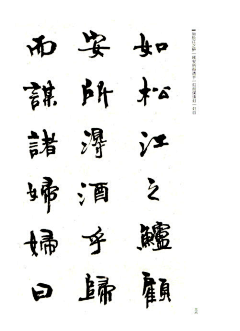 如松江之鱸顧
安所得酒乎歸
而謀諸婦婦曰